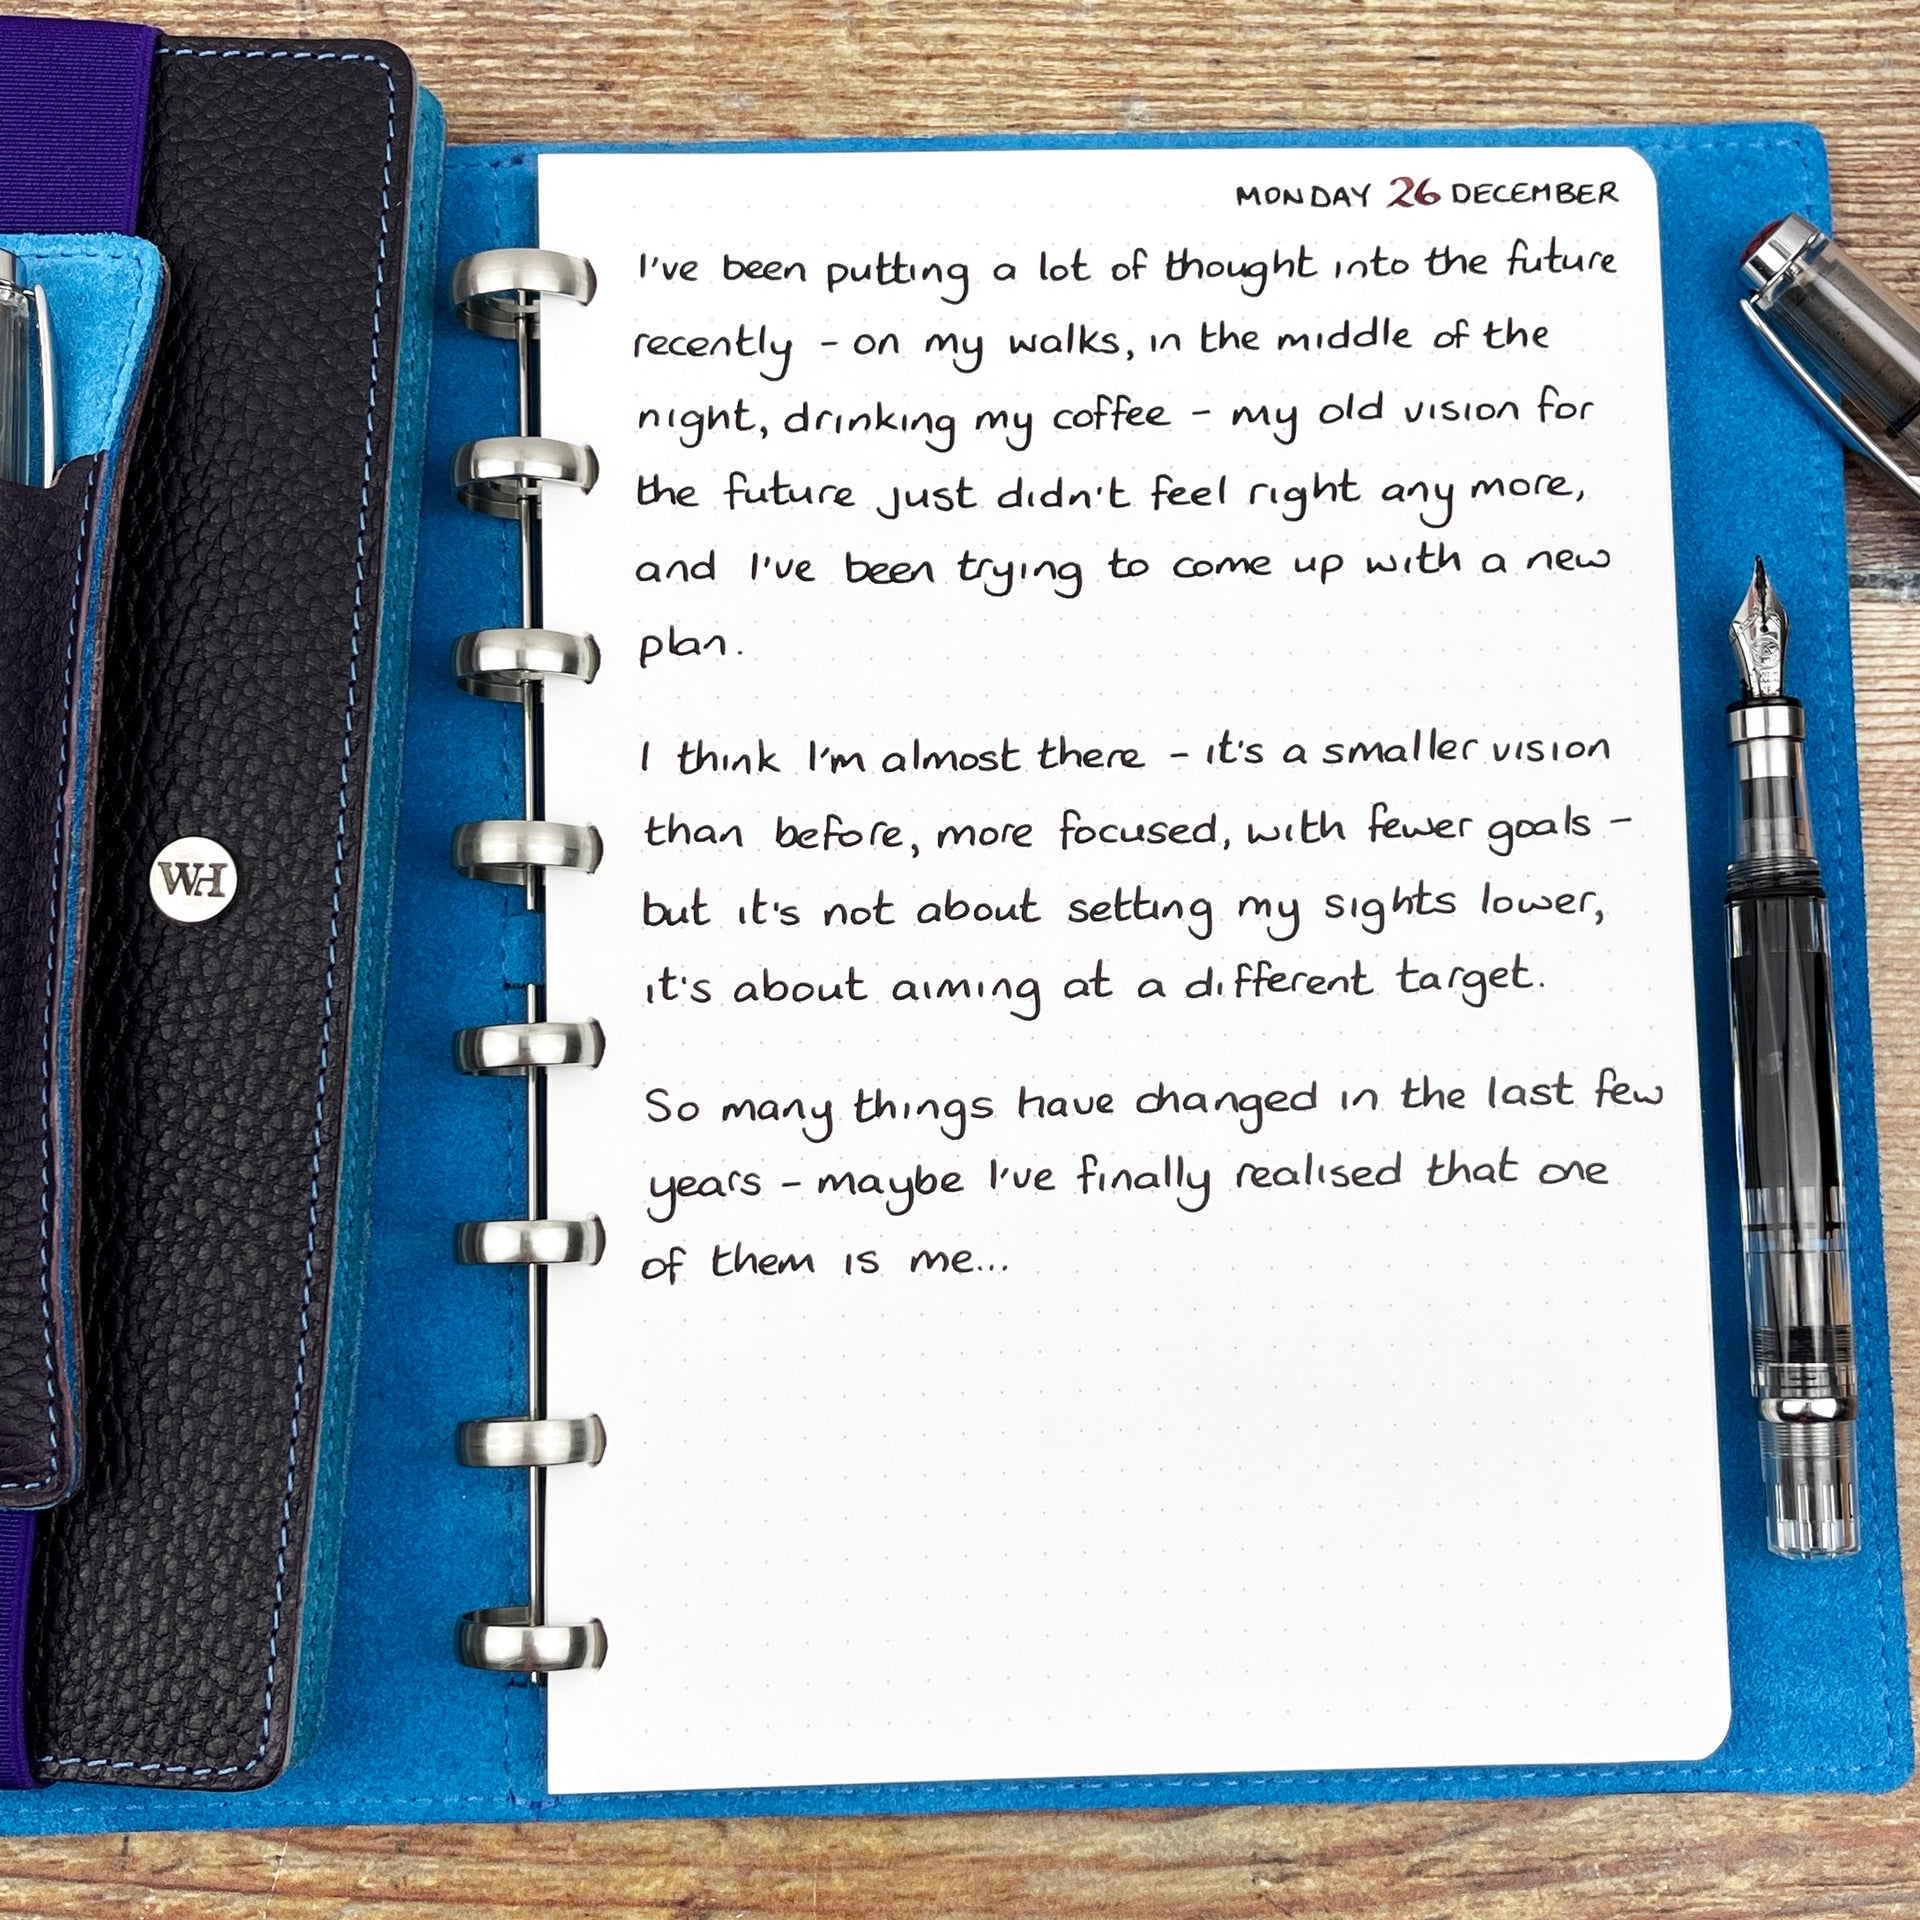 WH
MONDAY 26 DECEMBER
I've been putting a lot of thought into the future
recently - on my walks, in the middle of the
night, drinking my coffee - my old vision for
the future just didn't feel right any more,
and I've been trying to come up with a new
plan.
I think I'm almost there - it's a smaller vision
than before, more focused, with fewer goals -
but it's not about setting my sights lower,
it's about aiming at a different target.
So many things have changed in the last few
years - maybe I've finally realised that one
of them is me...